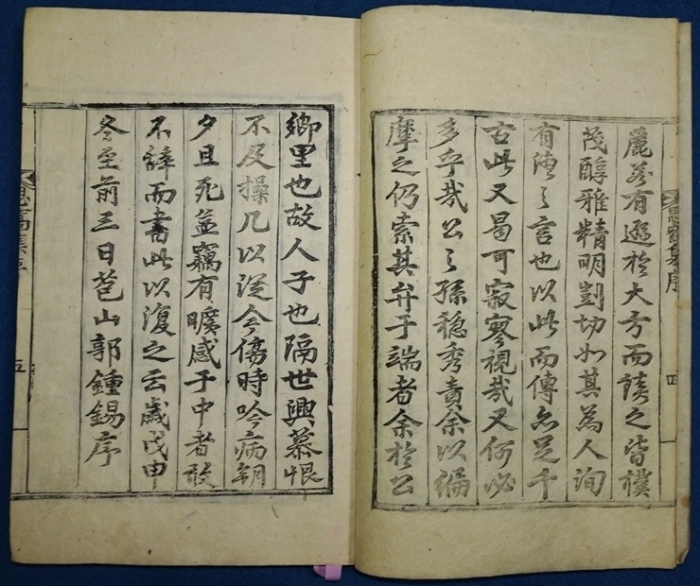 麗若有遜於大方而讀之皆樸
茂醇雅精明剴切如其為人洵
有德之言也以此而傳亦足千
古此又曷可寂寥視哉又何必
多乎哉公之孫穩秀責余以編
摩之仍索其弁于端者余於公
鄉里也故人子也隔世興慕恨
不及操几以從今傷時吟病朝
夕且死益竊有曠感于中者敢
不辭而書此以復之云歲戊申
冬至前三日苞山郭鍾錫序
四
五